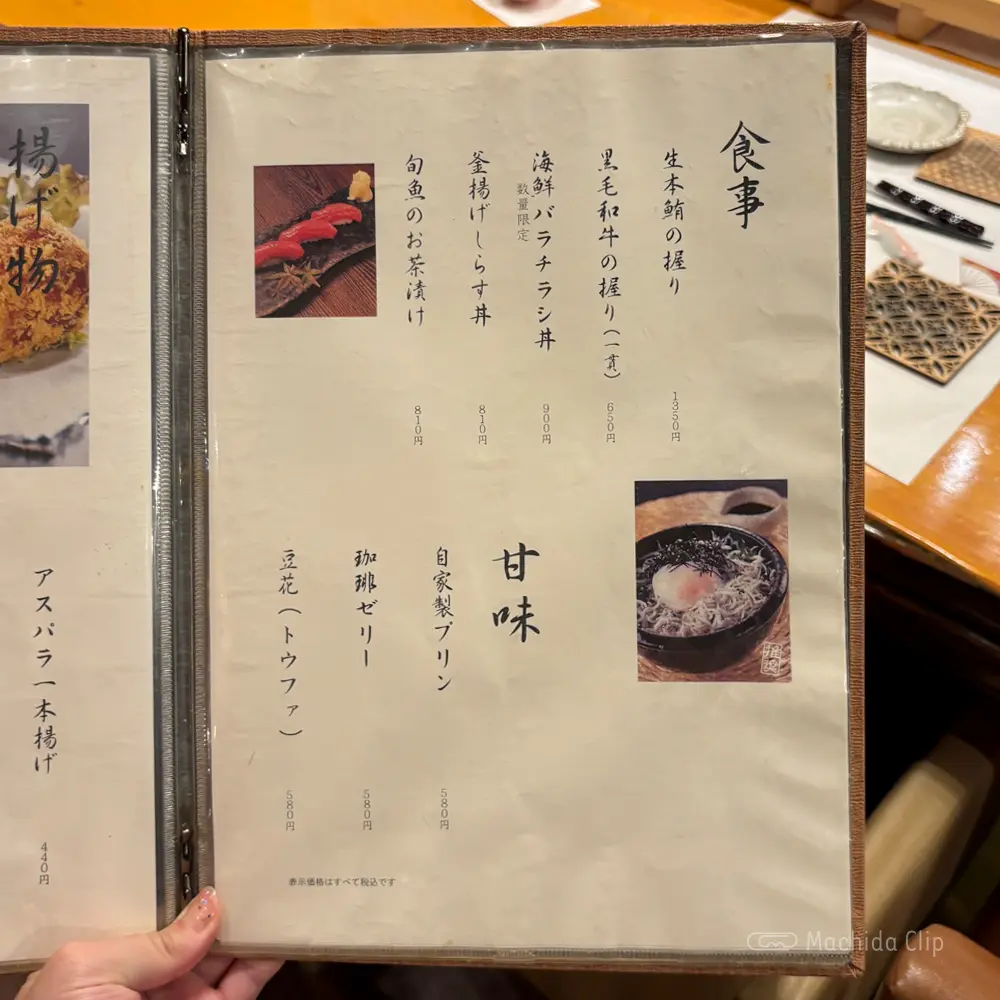 食事
生本鮪の握り
1350円
黒毛和牛の握り(一貫)
650円
海鮮バラチラシ丼
数量限定
900円
釜揚げしらす丼
810円
旬魚のお茶漬け
810円
甘味
自家製プリン
580円
珈琲ゼリー
580円
豆花(トウファ)
580円
表示価格はすべて税込です
揚げ物
アスパラ一本揚げ
440円
Machida Clip